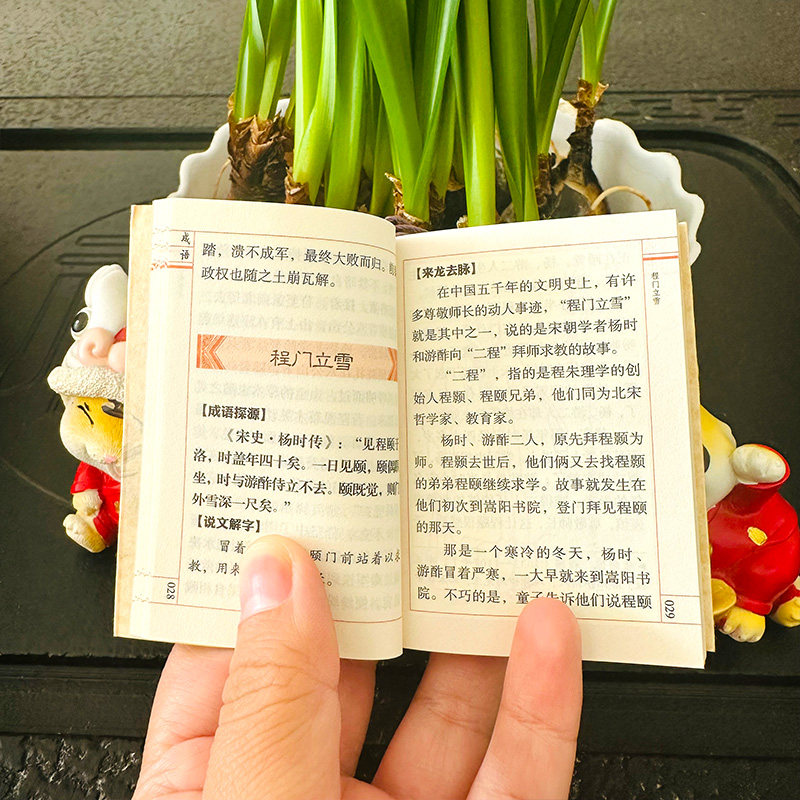 成语
踏，溃不成军，最终大败而归。
政权也随之土崩瓦解。
程门立雪
【成语探源】
《宋史·杨时传》：“见程颐于
洛，时盖年四十矣。一日见颐，颐偶
坐，时与游酢侍立不去。颐既觉，则门
外雪深一尺矣。”
【说文解字】
冒着 颐门前站着以求
教，用来
028
程门立雪
【来龙去脉】
在中国五千年的文明史上，有许
多尊敬师长的动人事迹，“程门立雪”
就是其中之一，说的是宋朝学者杨时
和游酢向“二程”拜师求教的故事。
“二程”，指的是程朱理学的创
始人程颢、程颐兄弟，他们同为北宋
哲学家、教育家。
杨时、游酢二人，原先拜程颢为
师。程颢去世后，他们俩又去找程颢
的弟弟程颐继续求学。故事就发生在
他们初次到嵩阳书院，登门拜见程颐
的那天。
那是一个寒冷的冬天，杨时、
游酢冒着严寒，一大早就来到嵩阳书
院。不巧的是，童子告诉他们说程颐
029